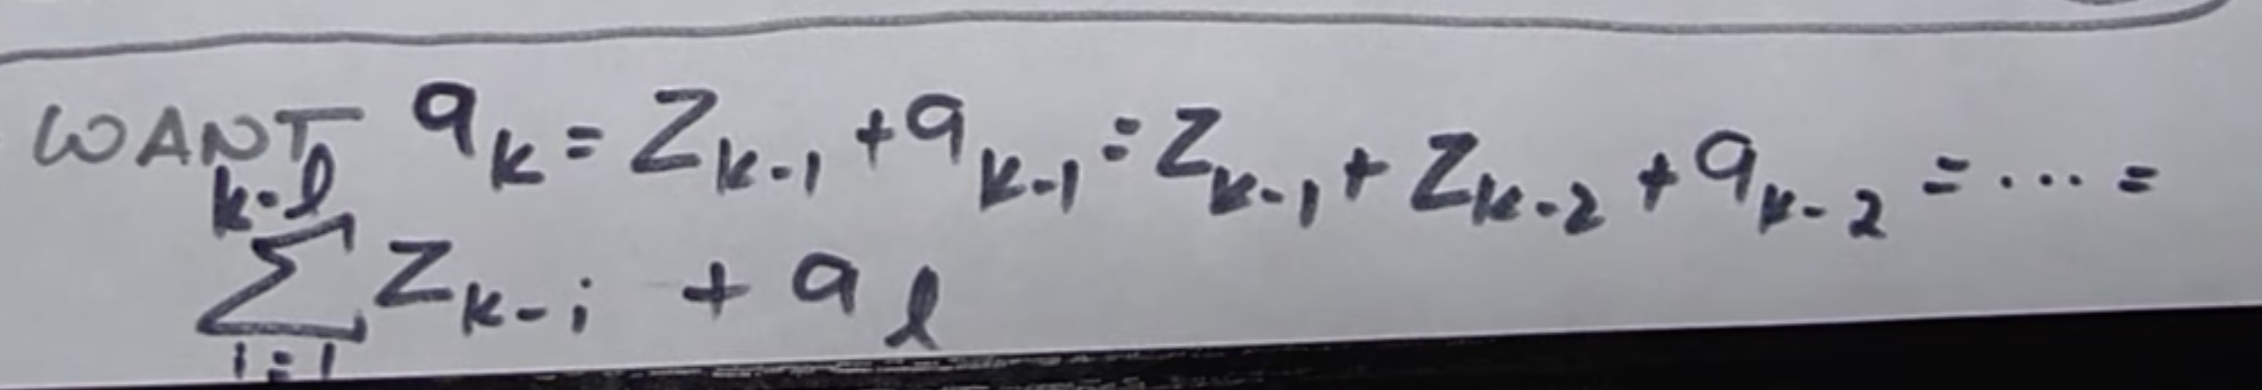 WANT a_k = Z_{k-1} + a_{k-1} = Z_{k-1} + Z_{k-2} + a_{k-2} = ... =
\sum_{i=1}^{k-l} Z_{k-i} + a_l